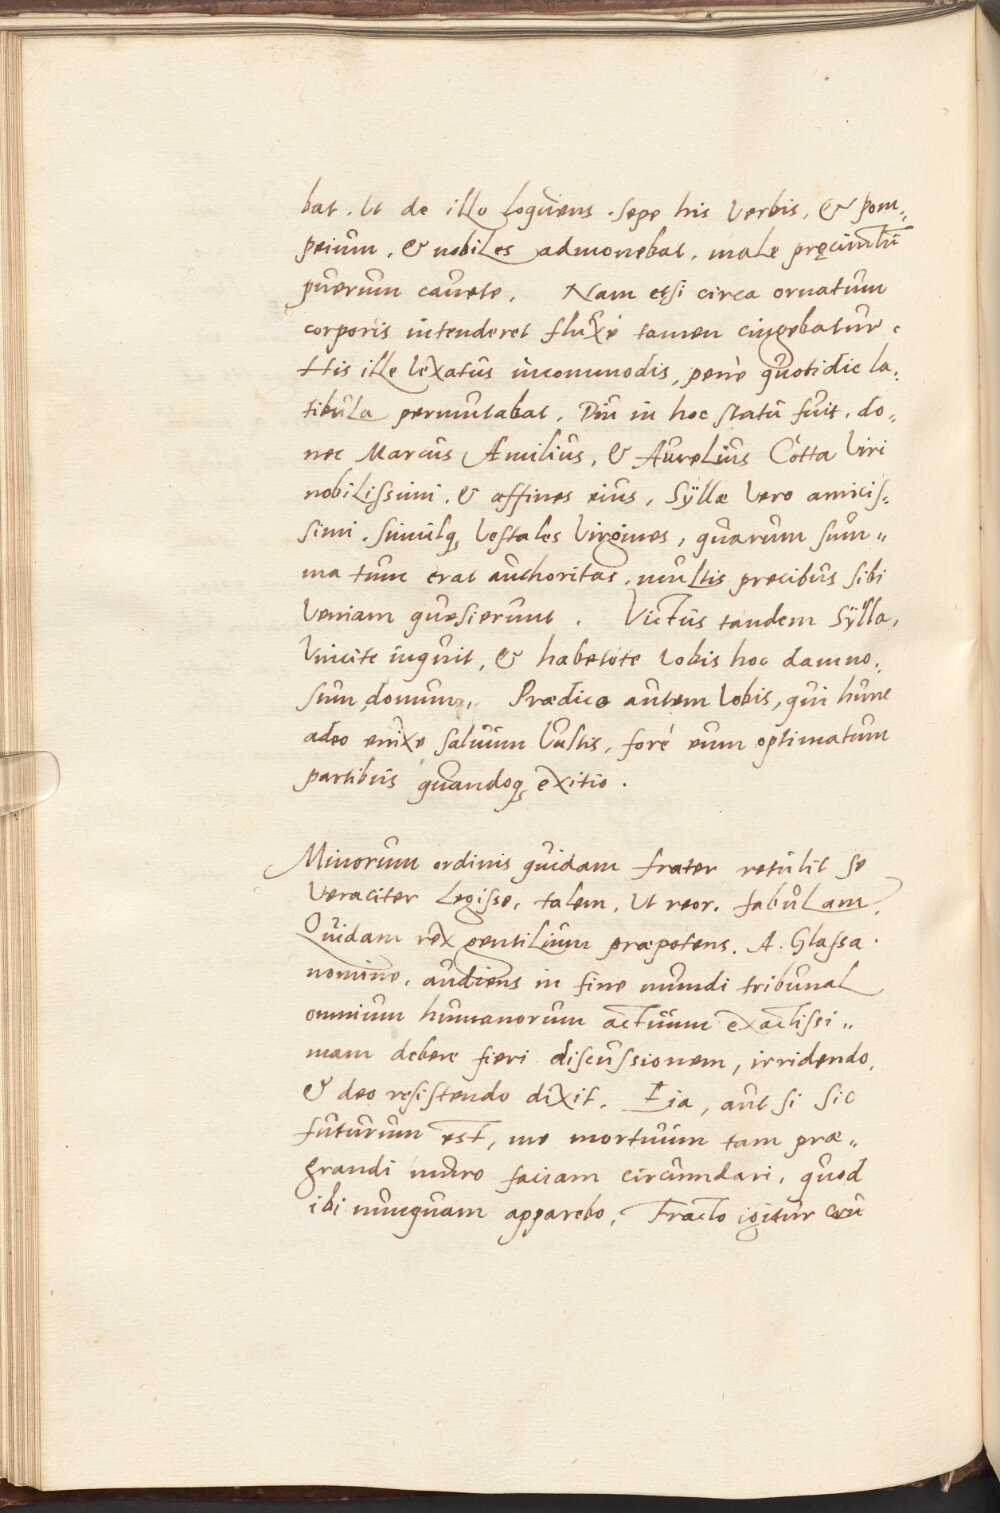 bat. Ut de illo loquens. sepe his verbis, & pom„
peium, & nobiles admonebat, male pręcinctū
puerum cavete. Nam etsi circa ornatum
corporis intenderet fluxe tamen cingebatur.
His ille vexatus incommodis, penè quotidie la„
tibula permutabat. Diu in hoc statu fuit, do„
nec Marcus Æmilius, & Aurelius Cotta viri
nobilissimi, & affines eius, Sÿllæ vero amicis„
simi. simulq; Vestales Virgines, quarum sum„
ma tunc erat authoritas, multis precibus sibi
veniam quesierunt. Victus tandem Sÿlla,
Vincite inquit, & habetote vobis hoc damno„
sum domum. Prædico autem vobis, qui hunc
adeo enixe saluum vultis, forè eum optimatum
partibus quandoq; exitio.

Minorum ordinis quidam frater retulit se
veraciter legisse, talem, ut reor, fabulam.
Quidam rex gentilium præpotens. A. Glassa.
nomine, audiens in fine mundi tribunal
omnium humanorum actuum exactissi„
mam debere fieri discussionem, irridendo,
& deo resistendo dixit. Eia, aut si sic
futurum est, me mortuum tam præ„
grandi muro faciam circumdari, quod
ibi nunquam apparebo. Facto igitur